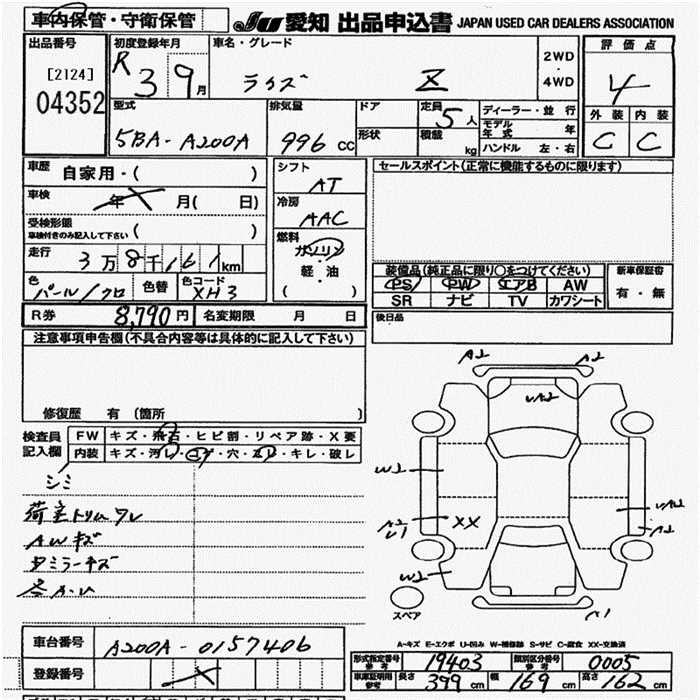 車内保管・守衛保管
JU 愛知 出品申込書 JAPAN USED CAR DEALERS ASSOCIATION
出品番号
[2124]
04352
初度登録年月
R 3 9月
車名・グレード
ライズ Z
2WD
・
4WD
評価点
4
外装 内装
C C
型式
5BA-A200A
排気量
996 CC
ドア
形状
定員 5人
積載 kg
ディーラー・並行
モデル年式 年
ハンドル 左・右
車歴 自家用・( )
車検 年 月( 日)
受検形態
車検付きのみ記入して下さい ( )
走行
3万8千161km
色
パール/クロ
色替
色コード
XH3
シフト
AT
冷房
AAC
燃料
ガソリン
・
軽・油
( )
セールスポイント(正常に機能するものに限ります)
装備品(純正品に限り○をつけてください)
PS PW エアB AW
SR ナビ TV カワシート
新車保証書
有・無
R券 8,790円 名変期限 月 日
後日品
注意事項申告欄(不具合内容等は具体的に記入して下さい)
修復歴 有(箇所 )
検査員記入欄
FW キズ・飛石・ヒビ割・リペア跡・X要
内装 キズ・汚レ・コゲ・穴・スレ・キレ・破レ
シミ
荷室トリムワレ
AWキズ
ミラーキズ
A2 A2
W2
A2
U1
XX
A2
W2
スペア
A-キズ E-エクボ U-凹み W-補修跡 S-サビ C-腐食 XX-交換済
車台番号 A200A-0157406
登録番号
形式指定番号参考 19403 類別区分番号参考 0005
車庫証明用参考 長さ 399cm 幅 169cm 高さ 162cm